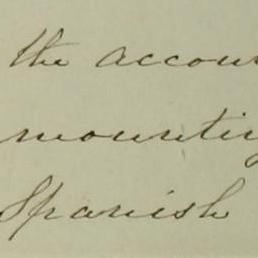 the accoun
mountin
Spanish